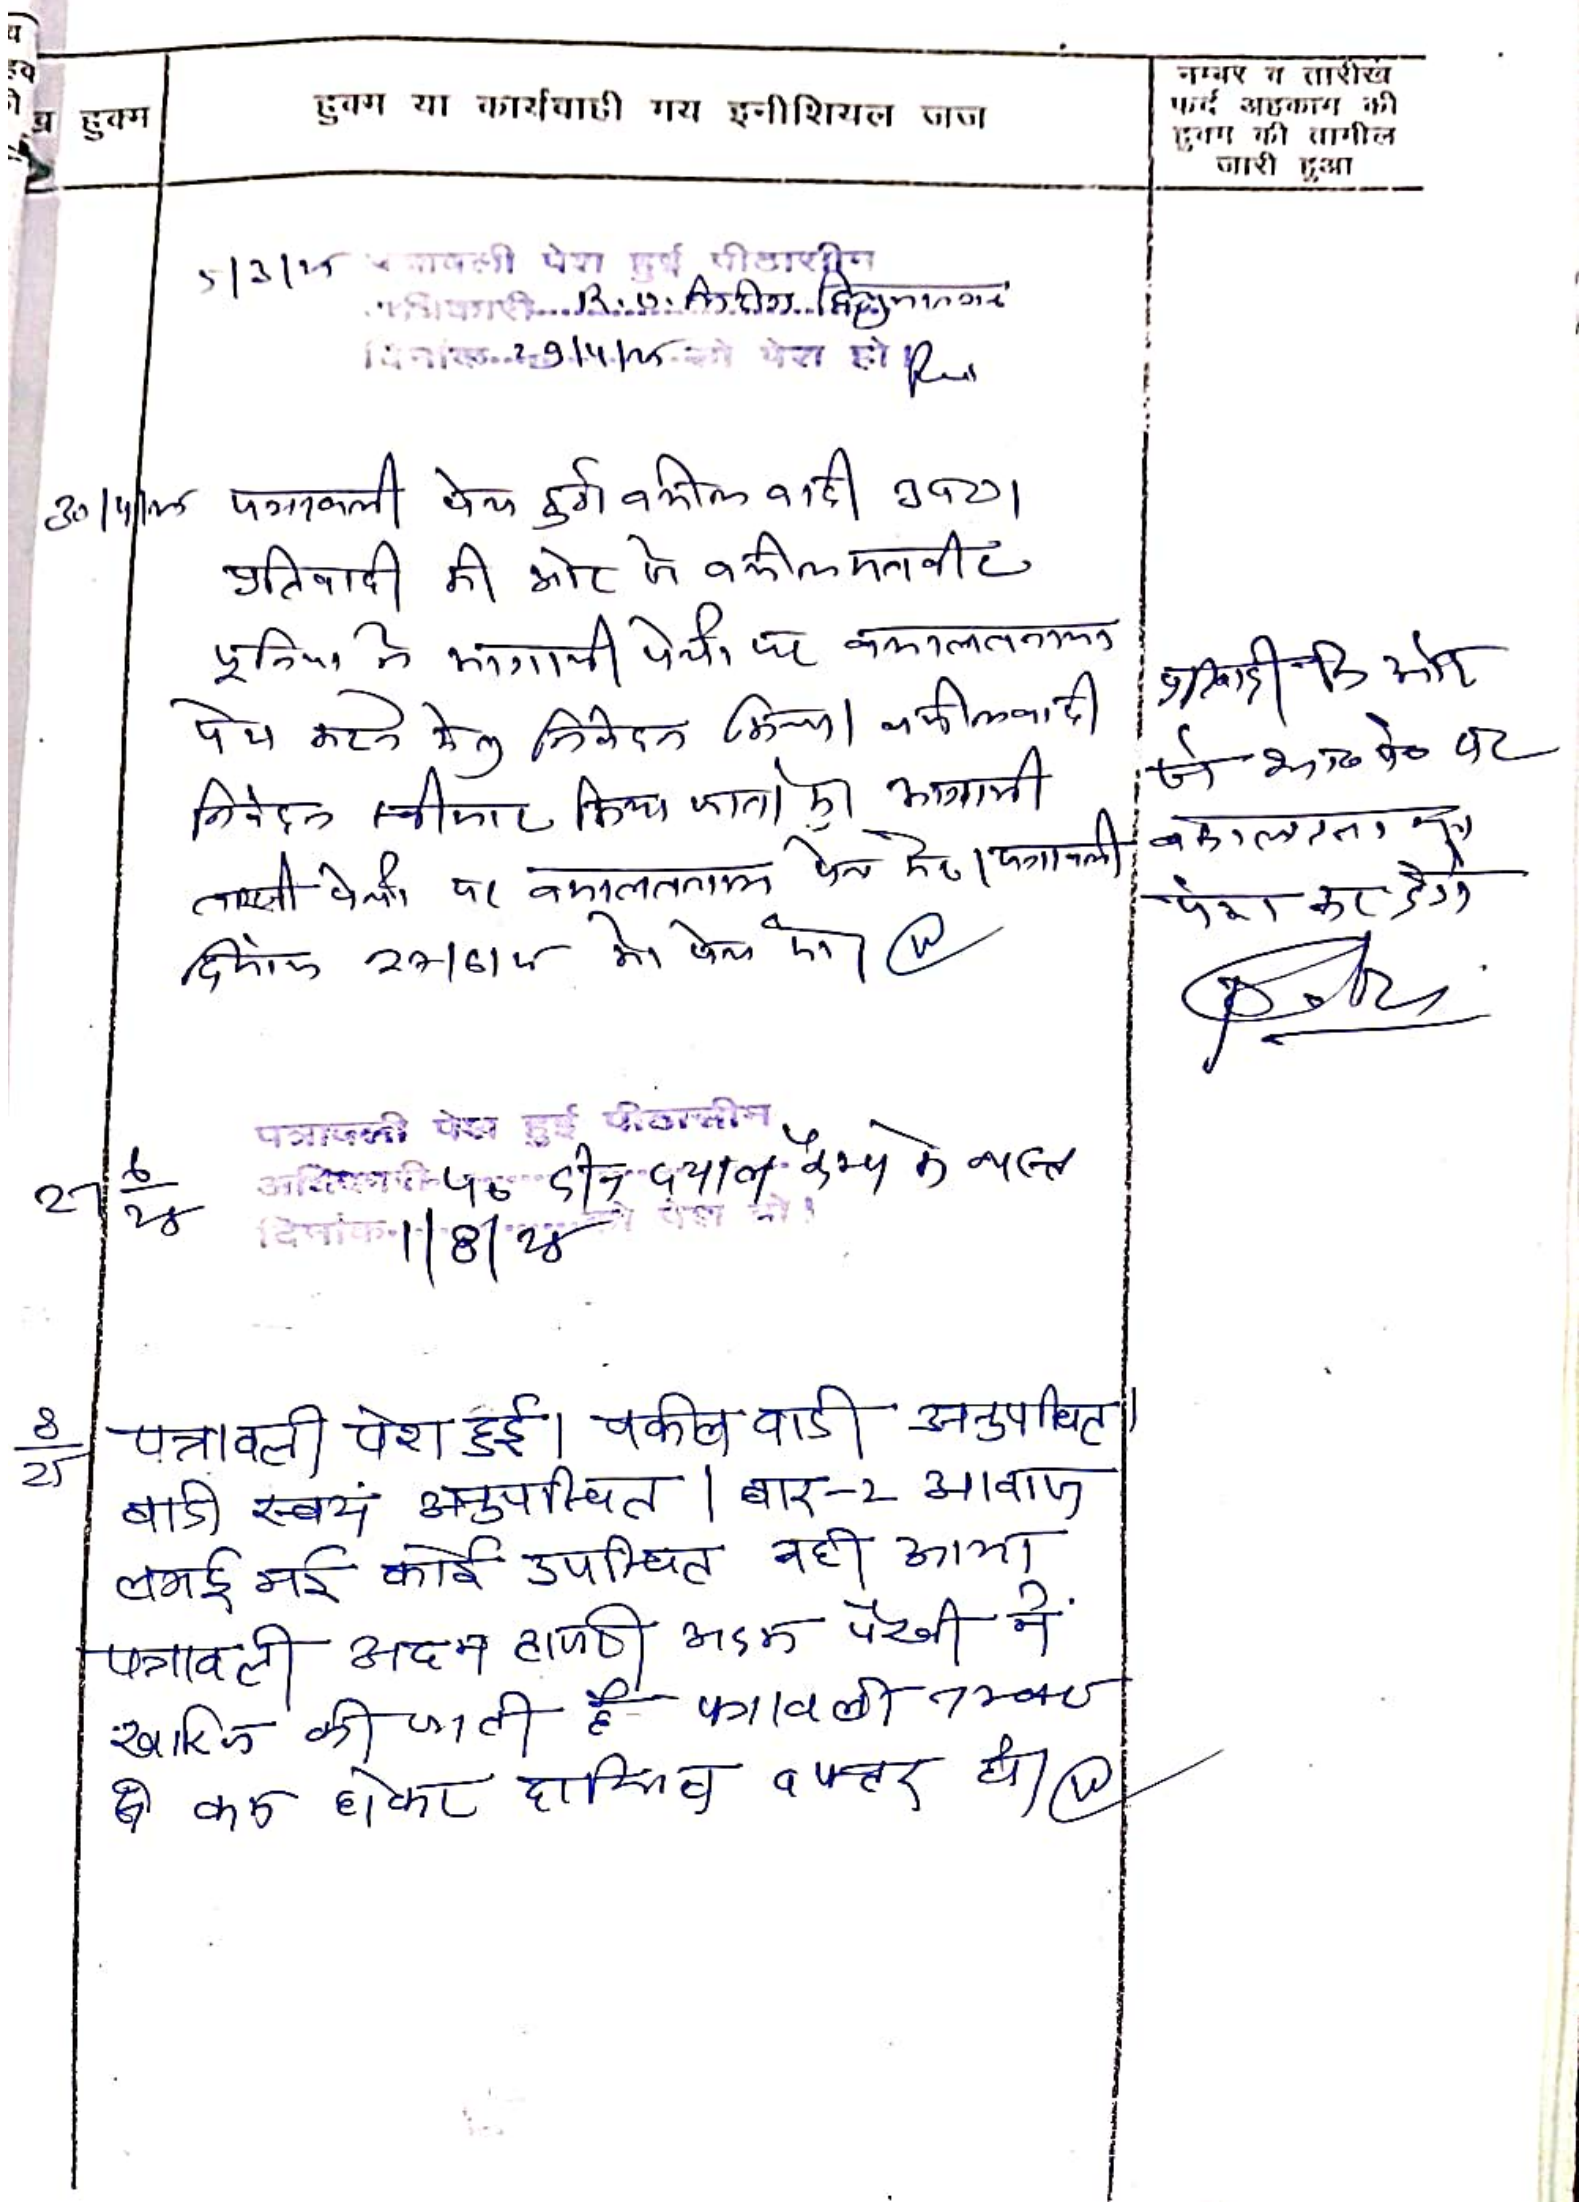 हुक्म
हुक्म या कार्यवाही मय इनीशियल जज
नम्बर व तारीख
फर्द अहकाम की
हुक्म की तामील
जारी हुआ
5/3/25 पत्रावली पेश हुई पीठासीन
अधिकारी R.O.
दिनांक 29/4/25 को पेश हो
30/4/25 पत्रावली पेश हुई वकील वादी उप०।
प्रतिवादी की ओर से वकील
पूनिया ने आगामी पेशी पर वकालतनामा
पेश करने हेतु निवेदन किया। वकील वादी
निवेदन स्वीकार किया जाता है। आगामी
पेशी पर वकालतनामा पेश करे। पत्रावली
दिनांक 27/6/25 को पेश हो।
प्रतिवादी कि ओर
से पर
वकालतनामा
पेश कर देंगे
पत्रावली पेश हुई पीठासीन
27/6/25 अधिकारी पं० दीन दयाल कैम्प मे व्यस्त
दिनांक 1/8/25 को पेश हो।
8/25 पत्रावली पेश हुई। वकील वादी अनुपस्थित।
वादी स्वयं अनुपस्थित। बार-2 आवाज
लगाई गई कोई उपस्थित नही आया
पत्रावली अदम हाजरी अदम पैरवी में
खारिज की जाती है पत्रावली नम्बर
से कम होकर दाखिल दफ्तर हो।